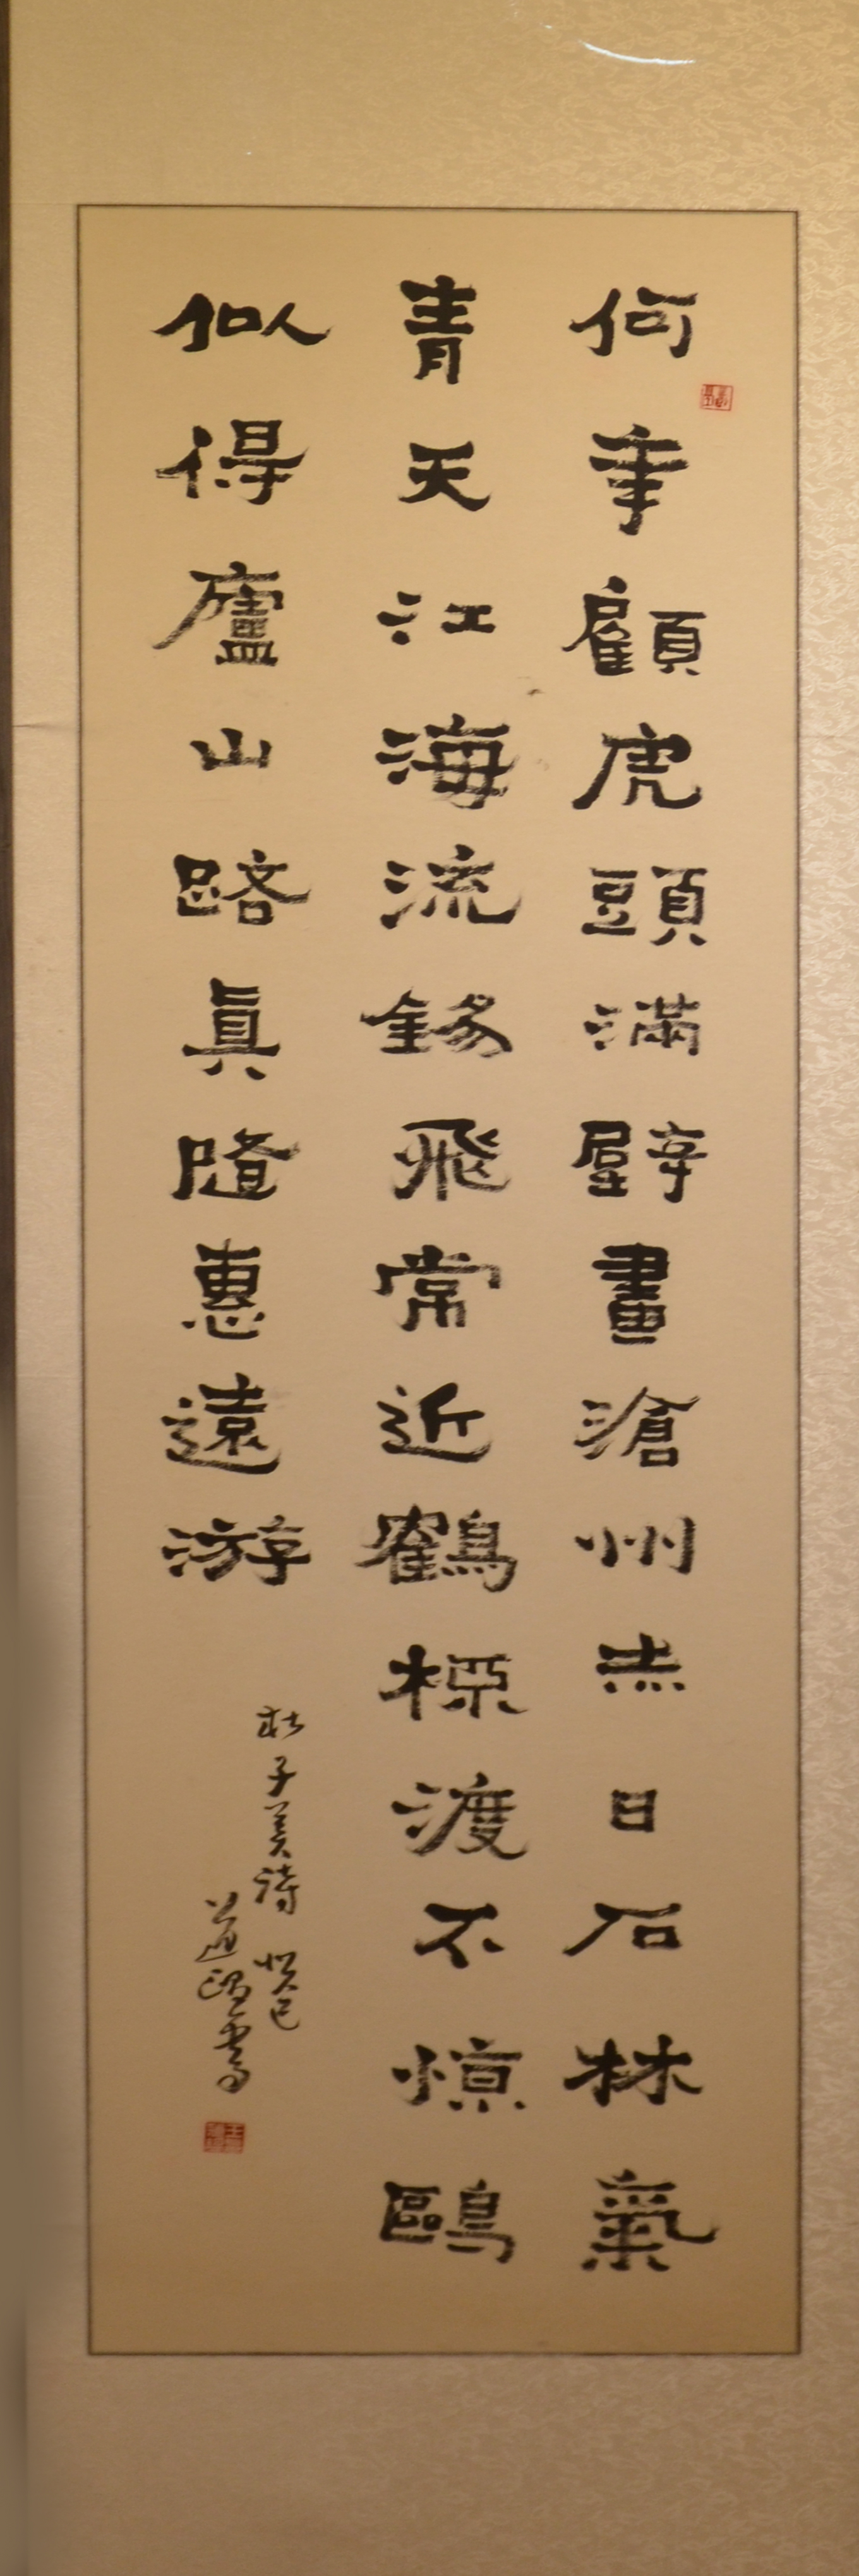 何年顧虎頭滿壁畫滄州赤日石林氣
青天江海流錫飛常近鶴桮渡不惊鷗
似得廬山路眞隨惠遠游
杜子美詩 癸巳
道書